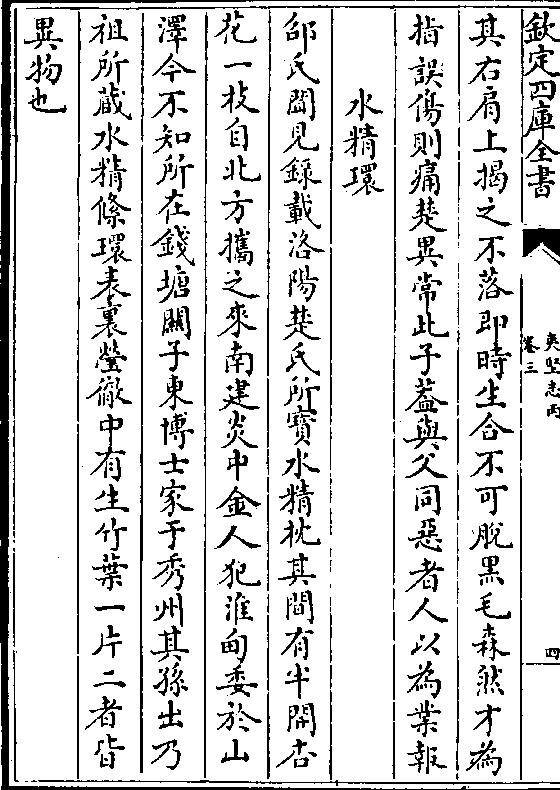 欽定四庫全書
夷堅志丙
卷三
四
其右肩上揭之不落即時生合不可脫黑毛森然才為
指誤傷則痛楚異常此子蓋與父同惡者人以為業報
水精環
邵氏聞見錄載洛陽楚氏所寶水精枕其間有半開杏
花一枝自北方攜之來南建炎中金人犯淮甸委於山
澤今不知所在錢塘關子東博士家于秀州其孫出乃
祖所藏水精絛環表裏瑩徹中有生竹葉一片二者皆
異物也